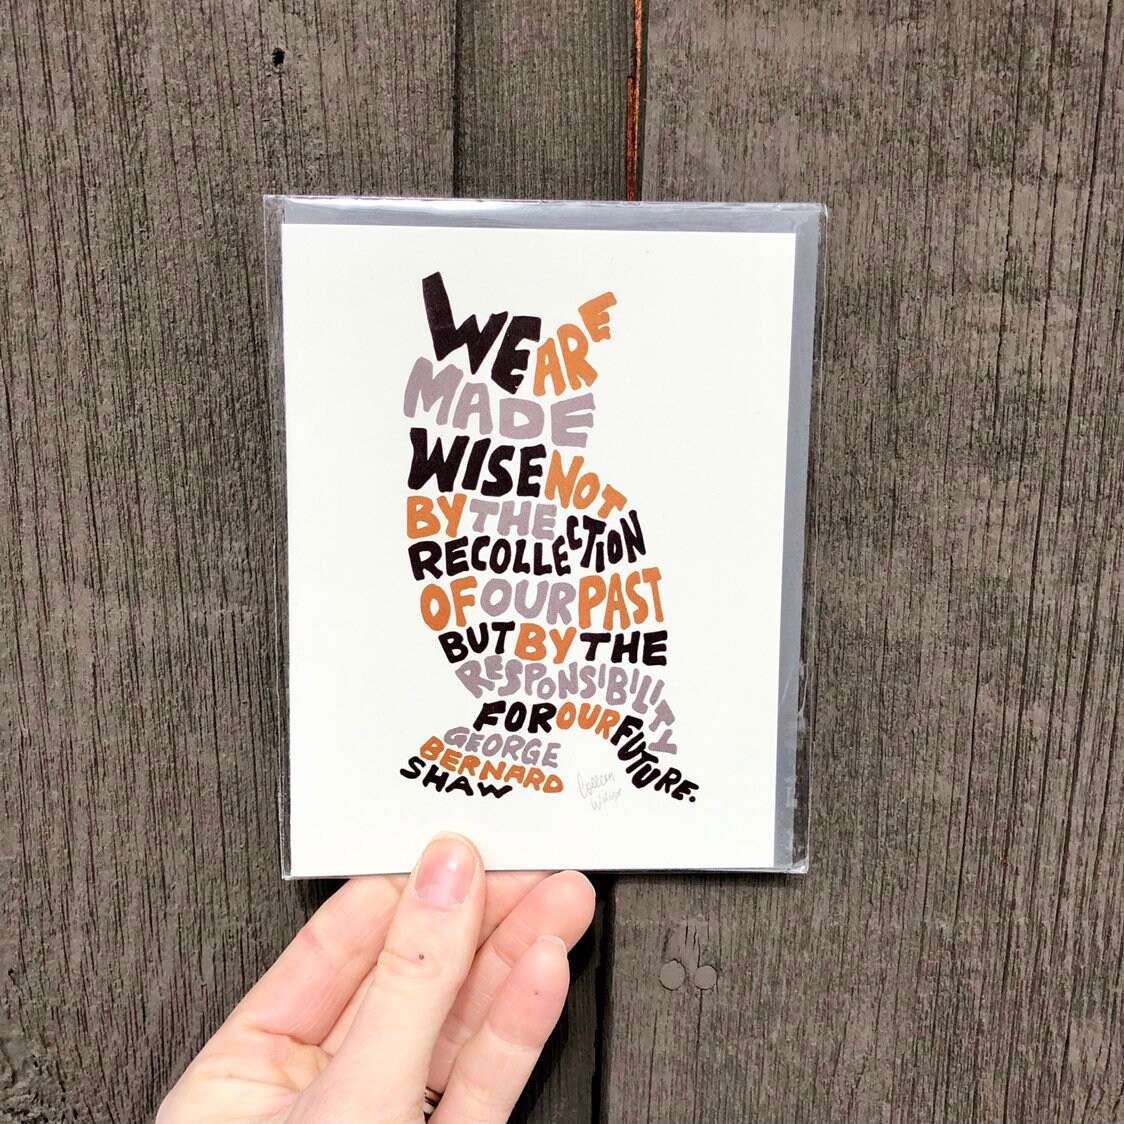 WE ARE
MADE
WISE NOT
BY THE
RECOLLECTION
OF OUR PAST
BUT BY THE
RESPONSIBILITY
FOR OUR FUTURE.
GEORGE
BERNARD
SHAW
Colleen